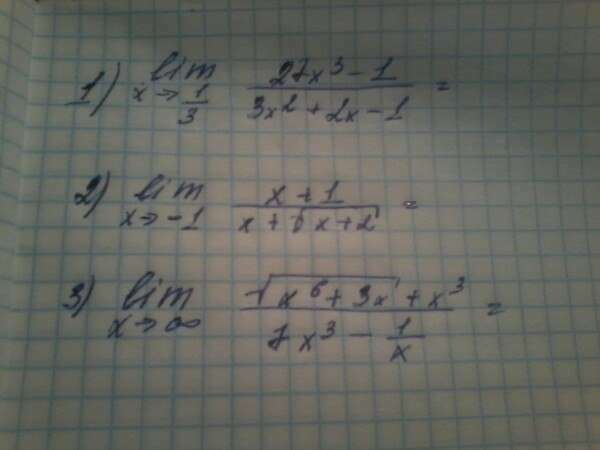 1) lim x→1/3 (27x³ − 1)/(3x² + 2x − 1) =
2) lim x→−1 (x + 1)/(x + √(x + 2)) =
3) lim x→∞ (√(x⁶ + 3x) + x³)/(7x³ − 1/x) =